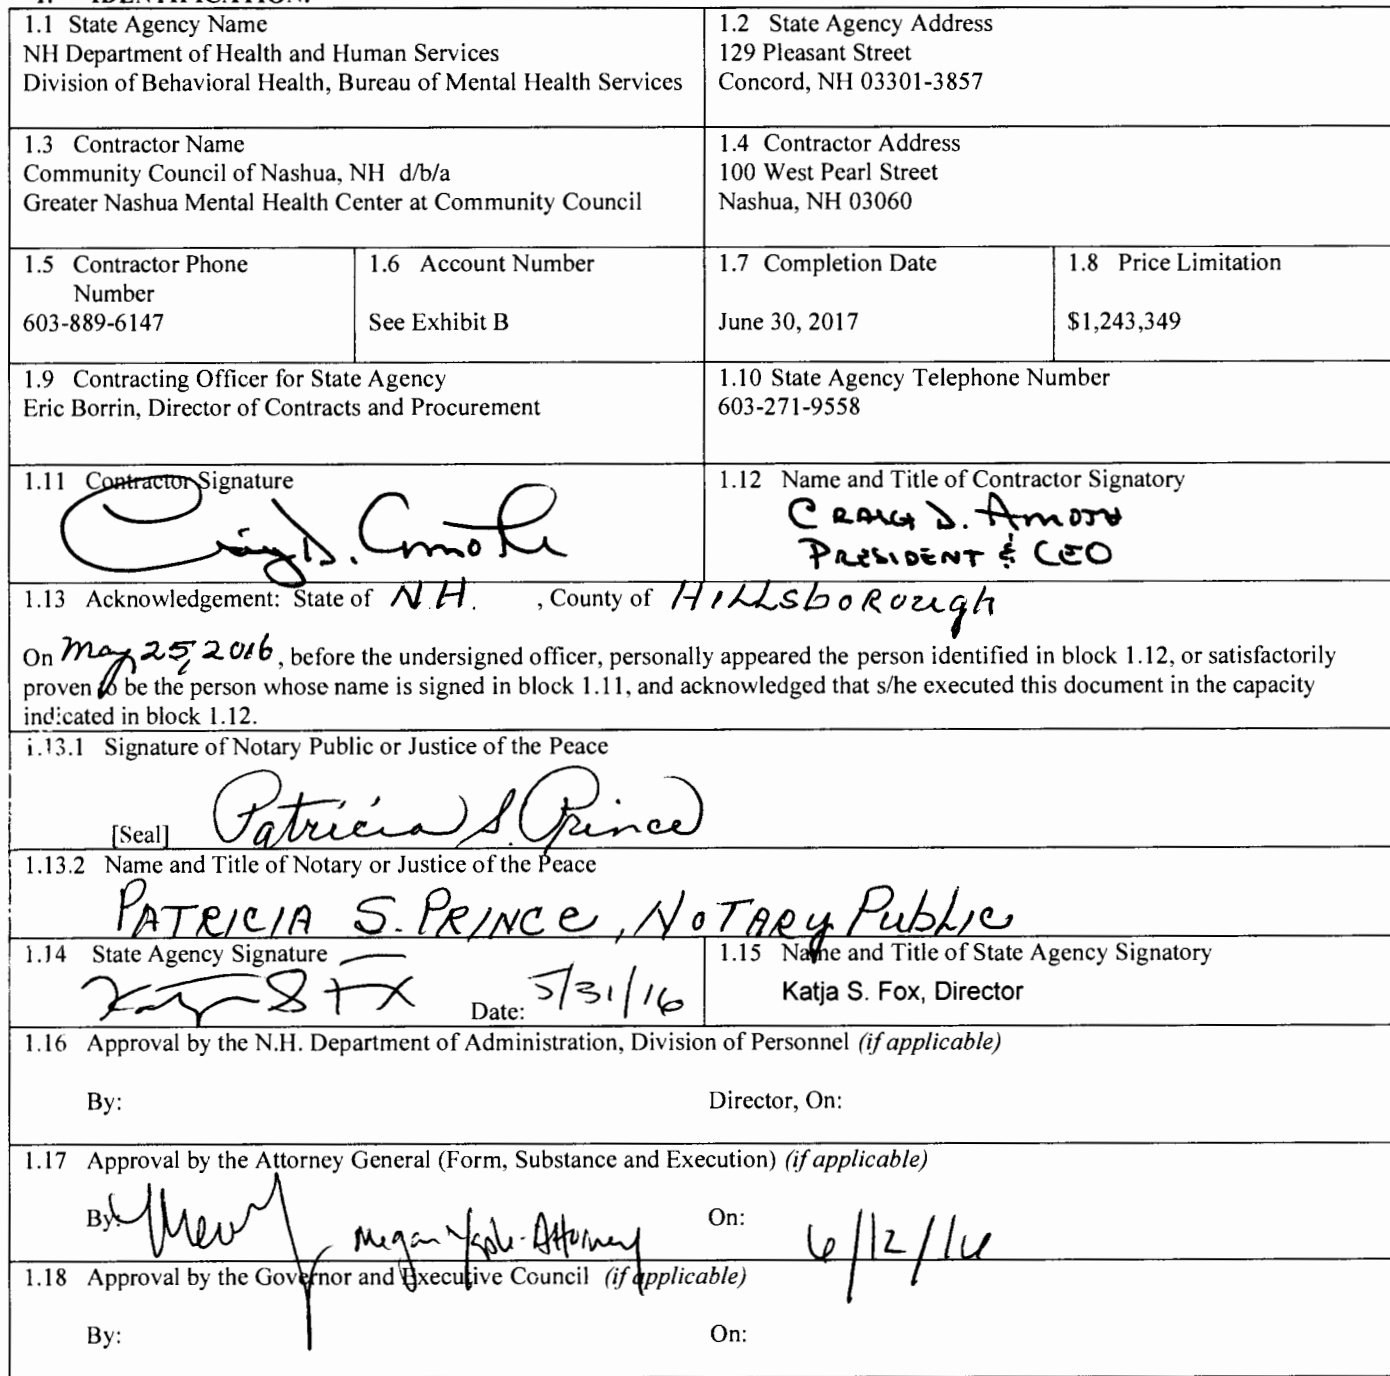 1. IDENTIFICATION.
1.1 State Agency Name
NH Department of Health and Human Services
Division of Behavioral Health, Bureau of Mental Health Services
1.2 State Agency Address
129 Pleasant Street
Concord, NH 03301-3857
1.3 Contractor Name
Community Council of Nashua, NH d/b/a
Greater Nashua Mental Health Center at Community Council
1.4 Contractor Address
100 West Pearl Street
Nashua, NH 03060
1.5 Contractor Phone
Number
603-889-6147
1.6 Account Number
See Exhibit B
1.7 Completion Date
June 30, 2017
1.8 Price Limitation
$1,243,349
1.9 Contracting Officer for State Agency
Eric Borrin, Director of Contracts and Procurement
1.10 State Agency Telephone Number
603-271-9558
1.11 Contractor Signature
Craig D.
1.12 Name and Title of Contractor Signatory
CRAIG D.
PRESIDENT & CEO
1.13 Acknowledgement: State of N.H. , County of Hillsborough
On May 25, 2016, before the undersigned officer, personally appeared the person identified in block 1.12, or satisfactorily
proven to be the person whose name is signed in block 1.11, and acknowledged that s/he executed this document in the capacity
indicated in block 1.12.
1.13.1 Signature of Notary Public or Justice of the Peace
[Seal] Patricia S. Prince
1.13.2 Name and Title of Notary or Justice of the Peace
PATRICIA S. PRINCE, NOTARY Public
1.14 State Agency Signature
Date: 5/31/16
1.15 Name and Title of State Agency Signatory
Katja S. Fox, Director
1.16 Approval by the N.H. Department of Administration, Division of Personnel (if applicable)
By: Director, On:
1.17 Approval by the Attorney General (Form, Substance and Execution) (if applicable)
By: Megan - Attorney On: 6/12/16
1.18 Approval by the Governor and Executive Council (if applicable)
By: On: